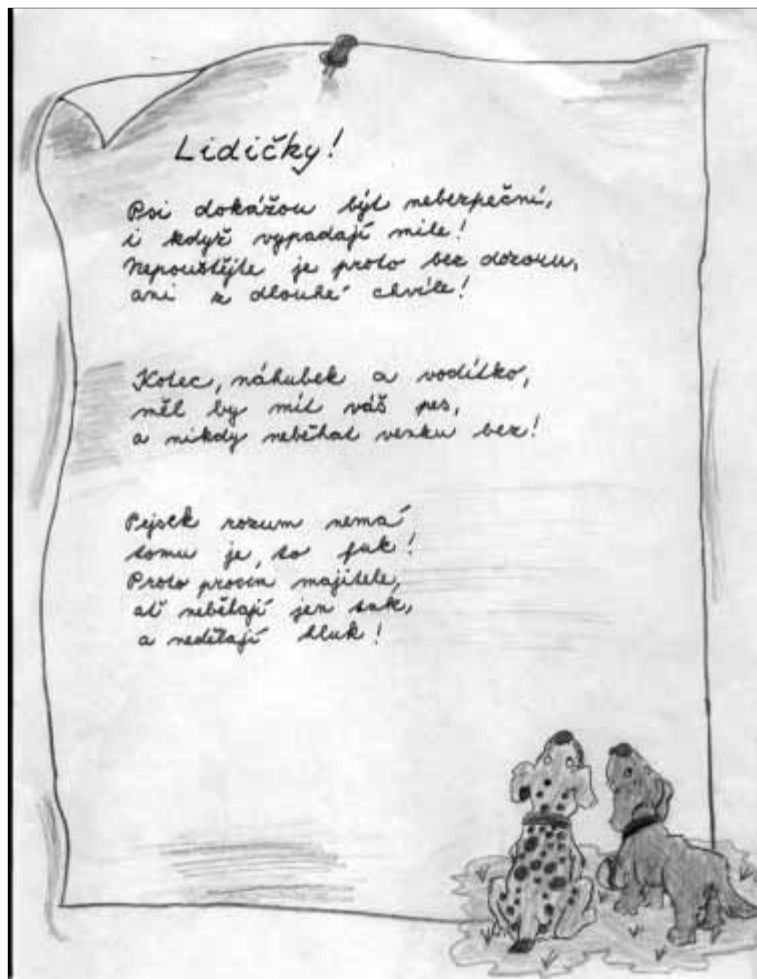 Lidičky!
Psi dokážou být nebezpeční,
i když vypadají mile!
Nepouštějte je proto bez dozoru,
ani z dlouhé chvíle!
Kotec, náhubek a vodítko,
měl by mít váš pes,
a nikdy neběhat venku bez!
Pejsek rozum nemá
tomu je, to fuk!
Proto prosím majitele,
ať neběhají jen tak,
a nedělají hluk!